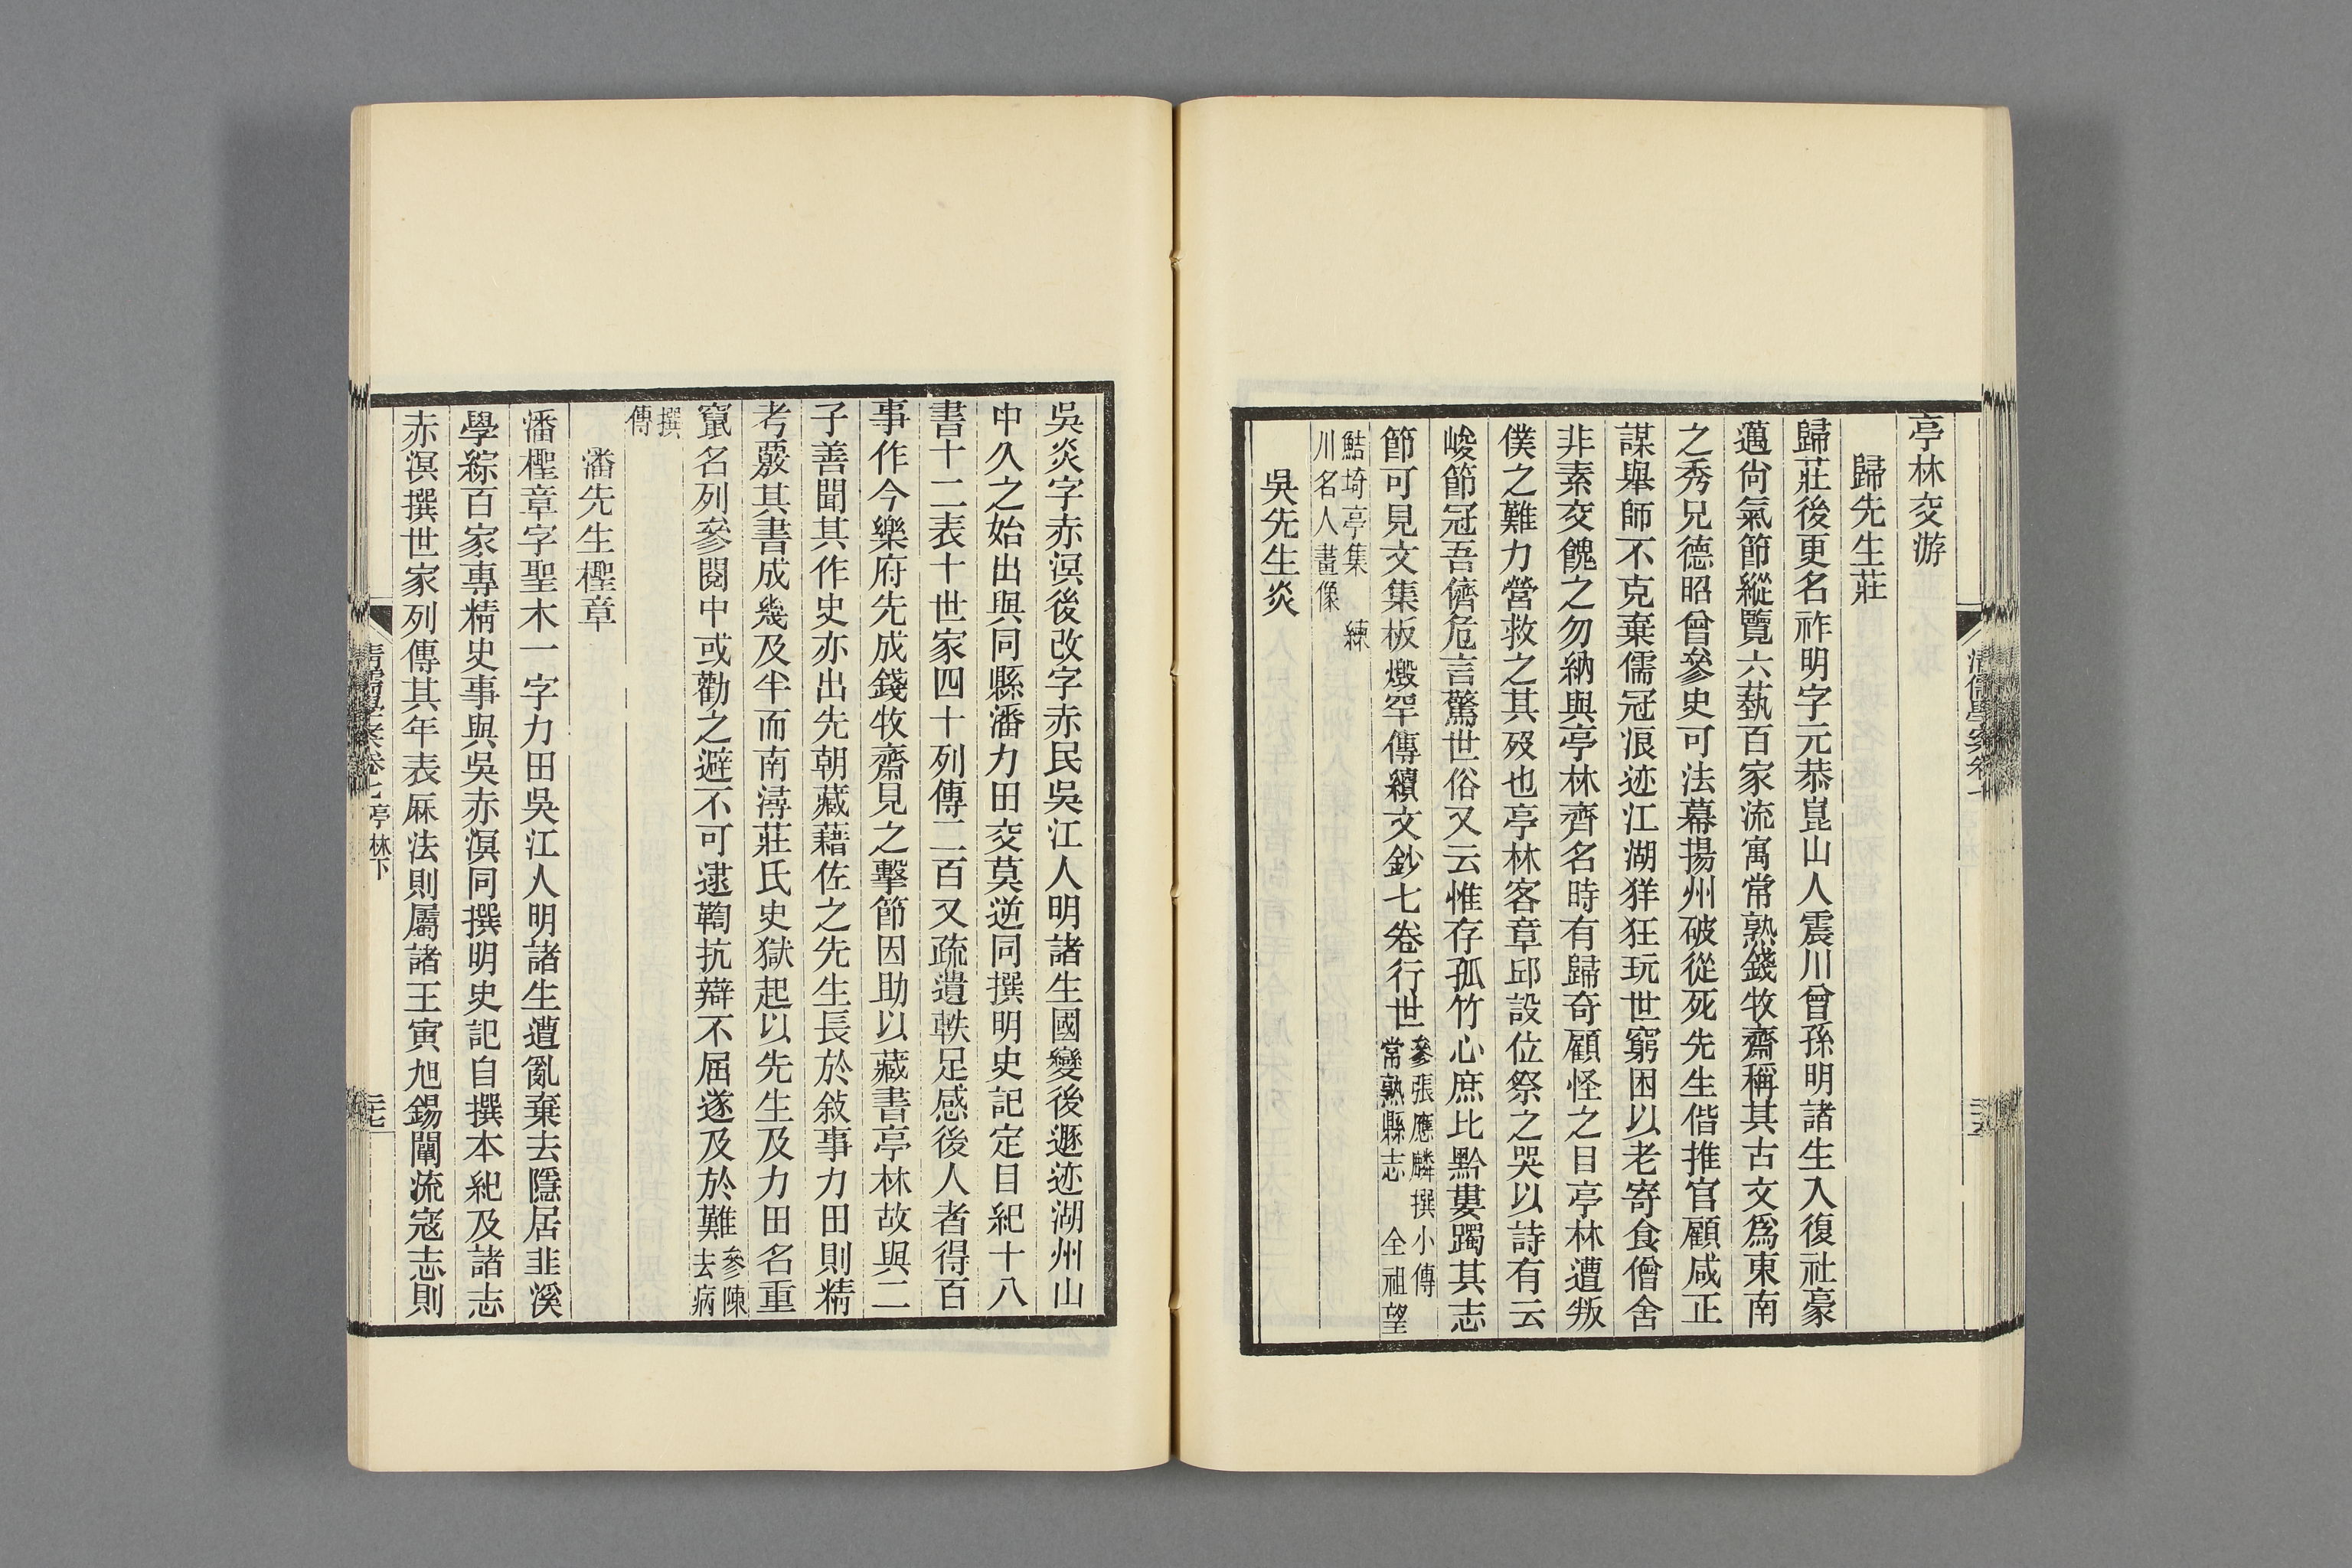 亭林交游
歸先生莊
歸莊後更名祚明字元恭崑山人震川曾孫明諸生入復社豪
邁尙氣節縱覽六蓺百家流寓常熟錢牧齋稱其古文爲東南
之秀兄德昭曾參史可法幕揚州破從死先生偕推官顧咸正
謀舉師不克棄儒冠浪迹江湖佯狂玩世窮困以老寄食僧舍
非素交餽之勿納與亭林齊名時有歸奇顧怪之目亭林遭叛
僕之難力營救之其歿也亭林客章邱設位祭之哭以詩有云
峻節冠吾儕危言驚世俗又云惟存孤竹心庶比黔婁躅其志
節可見文集板燬罕傳續文鈔七卷行世參張應麟撰小傳
常熟縣志 全祖望
鮚埼亭集 練
川名人畫像
吳先生炎
吳炎字赤溟後改字赤民吳江人明諸生國變後遯迹湖州山
中久之始出與同縣潘力田交莫逆同撰明史記定目紀十八
書十二表十世家四十列傳二百又疏遺軼足感後人者得百
事作今樂府先成錢牧齋見之擊節因助以藏書亭林故與二
子善聞其作史亦出先朝藏藉佐之先生長於敍事力田則精
考覈其書成幾及半而南潯莊氏史獄起以先生及力田名重
竄名列參閱中或勸之避不可逮鞫抗辯不屈遂及於難參陳
去病
撰
傳
潘先生檉章
潘檉章字聖木一字力田吳江人明諸生遭亂棄去隱居韭溪
學綜百家專精史事與吳赤溟同撰明史記自撰本紀及諸志
赤溟撰世家列傳其年表厤法則屬諸王寅旭錫闡流寇志則
清儒學案卷七 亭林下